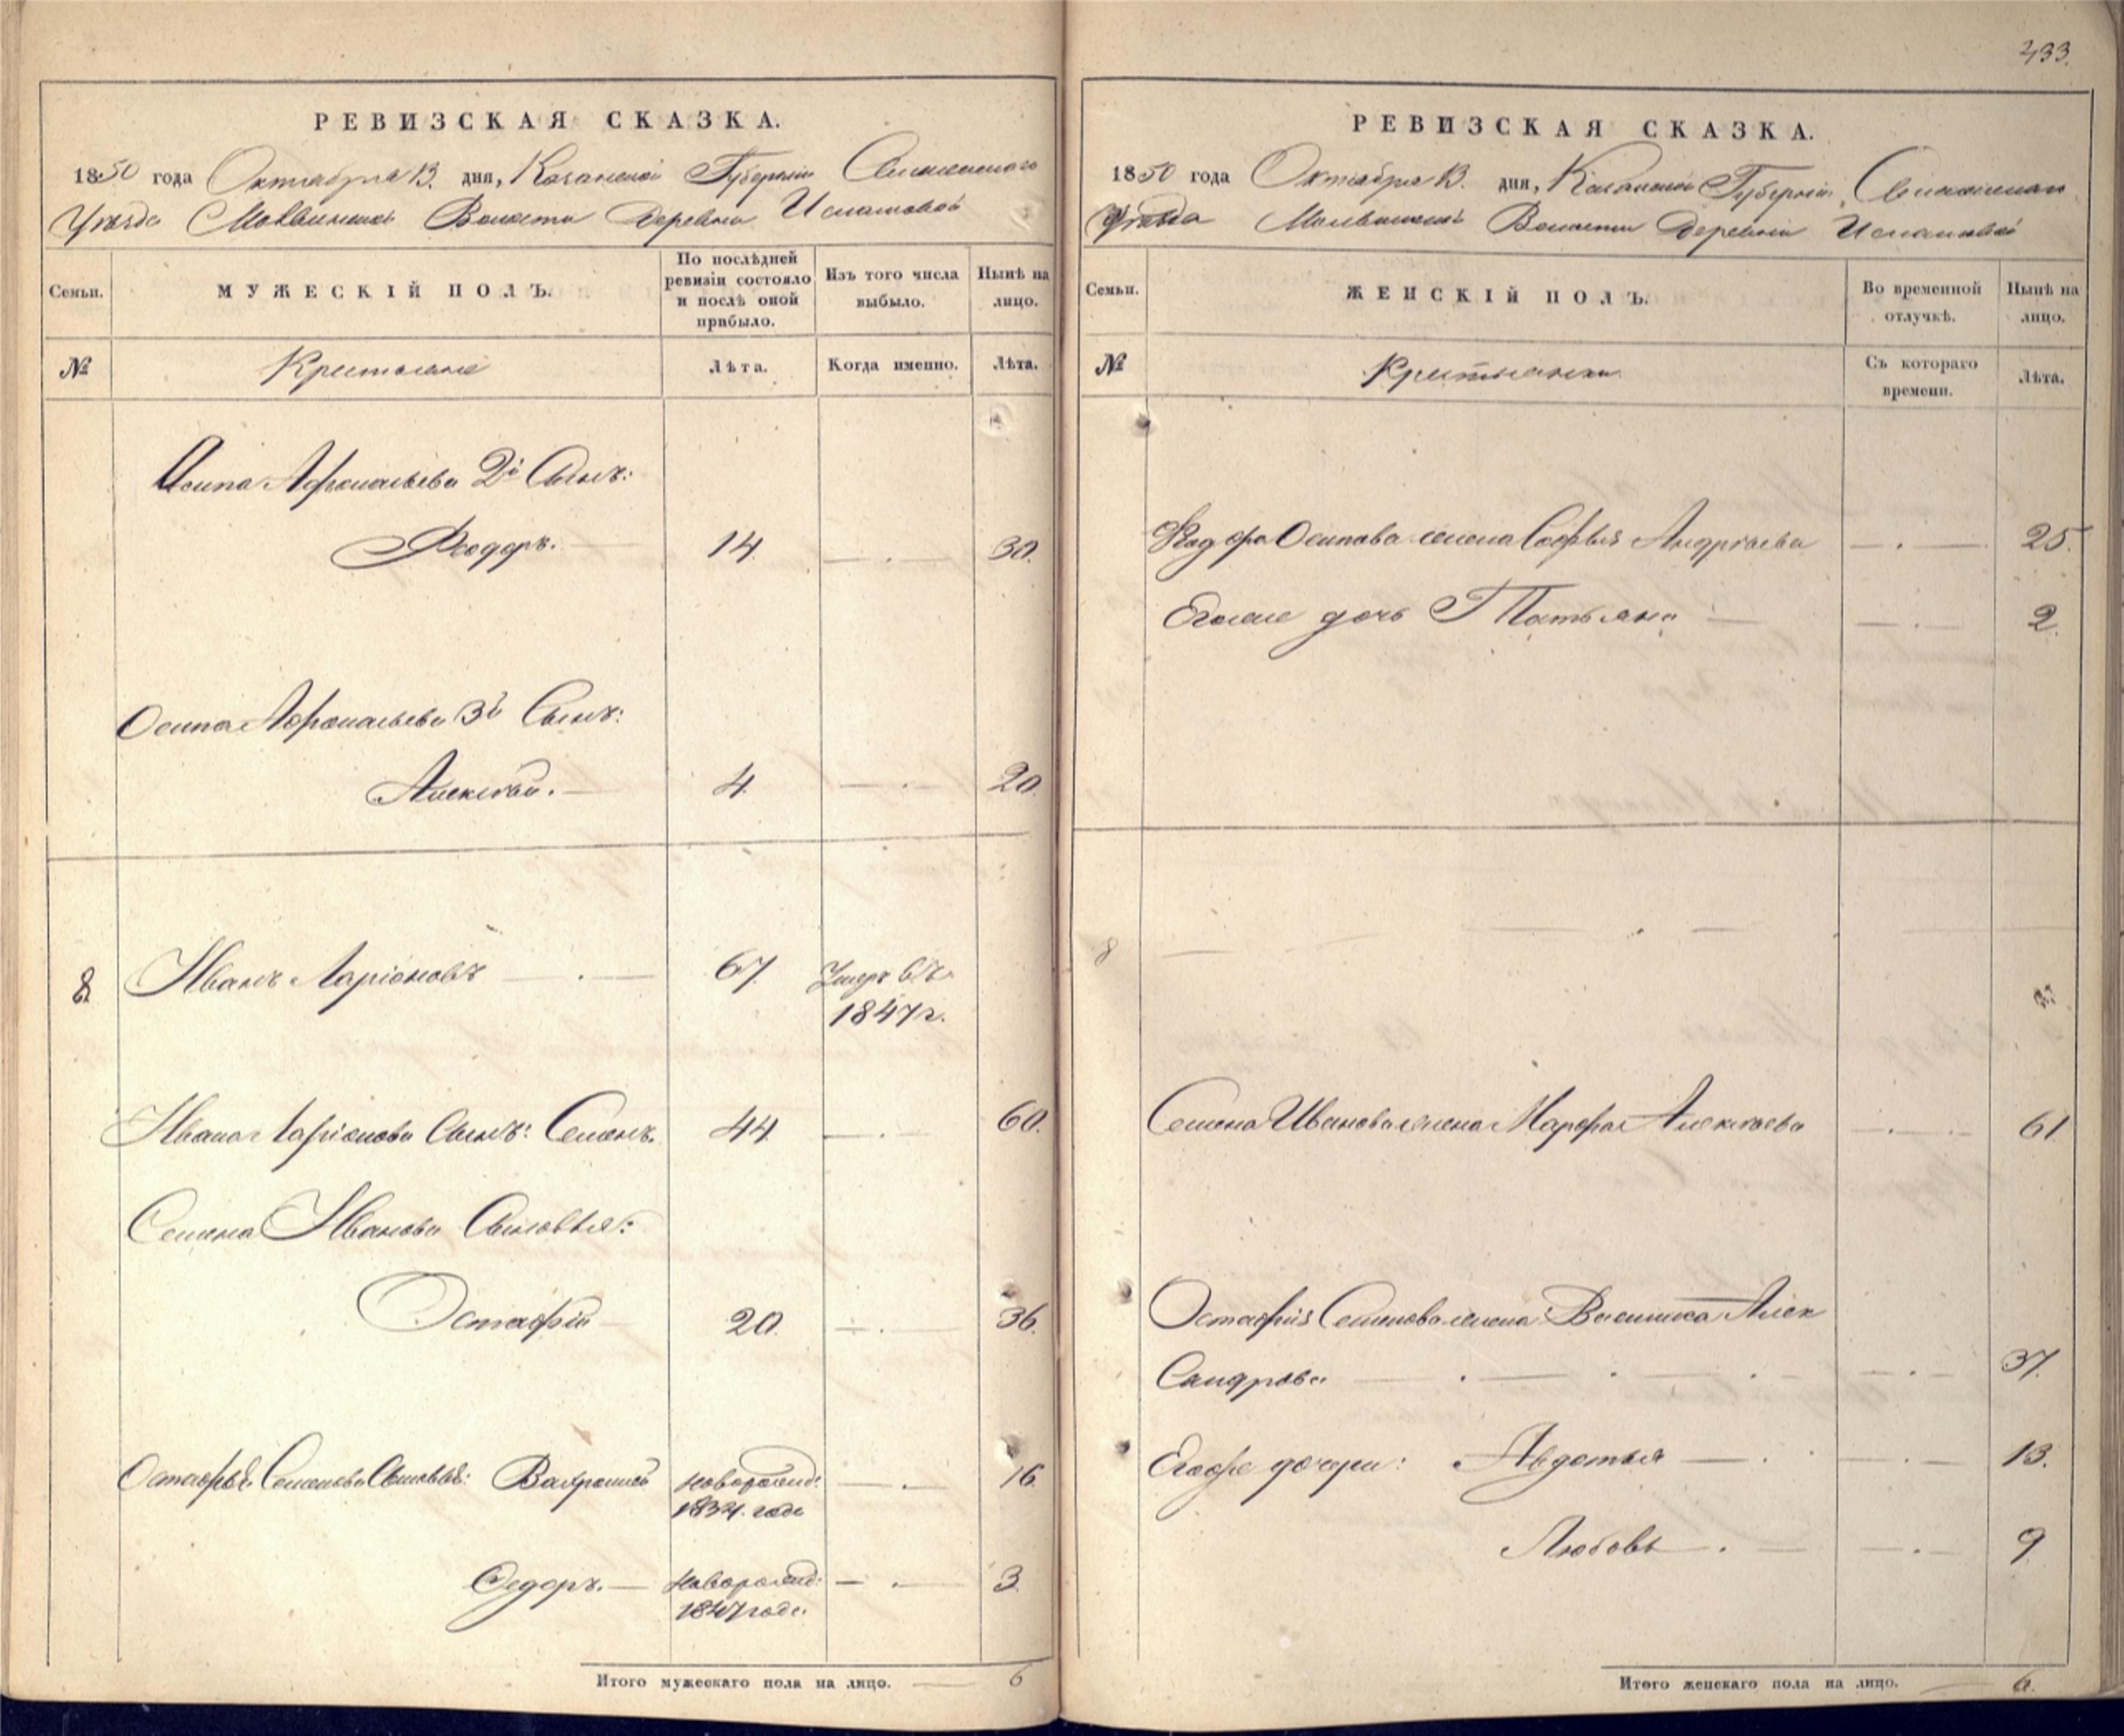 433.
РЕВИЗСКАЯ СКАЗКА.
1850 года Октября 13. дня, Казанской Губерніи Свіяжскаго
Уѣзда Молвинской Волости Деревни Исламовой
Семьи.
МУЖЕСКІЙ ПОЛЪ.
По послѣдней ревизіи состояло и послѣ оной прибыло.
Изъ того числа выбыло.
Нынѣ на лицо.
№
Крестьяне
Лѣта.
Когда именно.
Лѣта.
Осипа Афонасьева 2й Сынъ:
Феодоръ. 14. 30.
Осипа Афонасьева 3й Сынъ:
Алексѣй. 4. 20.
8. Иванъ Ларіоновъ 67. Умеръ въ
1847 г.
Ивана Ларіонова Сынъ: Семенъ. 44. 60.
Семена Иванова Сыновья:
Остафій 20. 36.
Остафья Семенова Сыновья: Вахрамей новорожд: 16.
1834. года
Федоръ. новорожд: 3.
1847 года
Итого мужескаго пола на лицо. 6
РЕВИЗСКАЯ СКАЗКА.
1850 года Октября 13. дня, Казанской Губерніи, Свіяжскаго
Уѣзда Молвинской Волости Деревни Исламовой
Семьи.
ЖЕНСКІЙ ПОЛЪ.
Во временной отлучкѣ.
Нынѣ на лицо.
№
Крестьянки
Съ котораго времени.
Лѣта.
Федора Осипова жена Софья Андрѣева 25.
Егоже дочь Татьяна 2.
8
Семена Иванова жена Марфа Алексѣева 61
Остафія Семенова жена Василиса Алек
Сандрова 37.
Егоже дочери: Авдотья 13.
Любовь 9
Итого женскаго пола на лицо. 6.